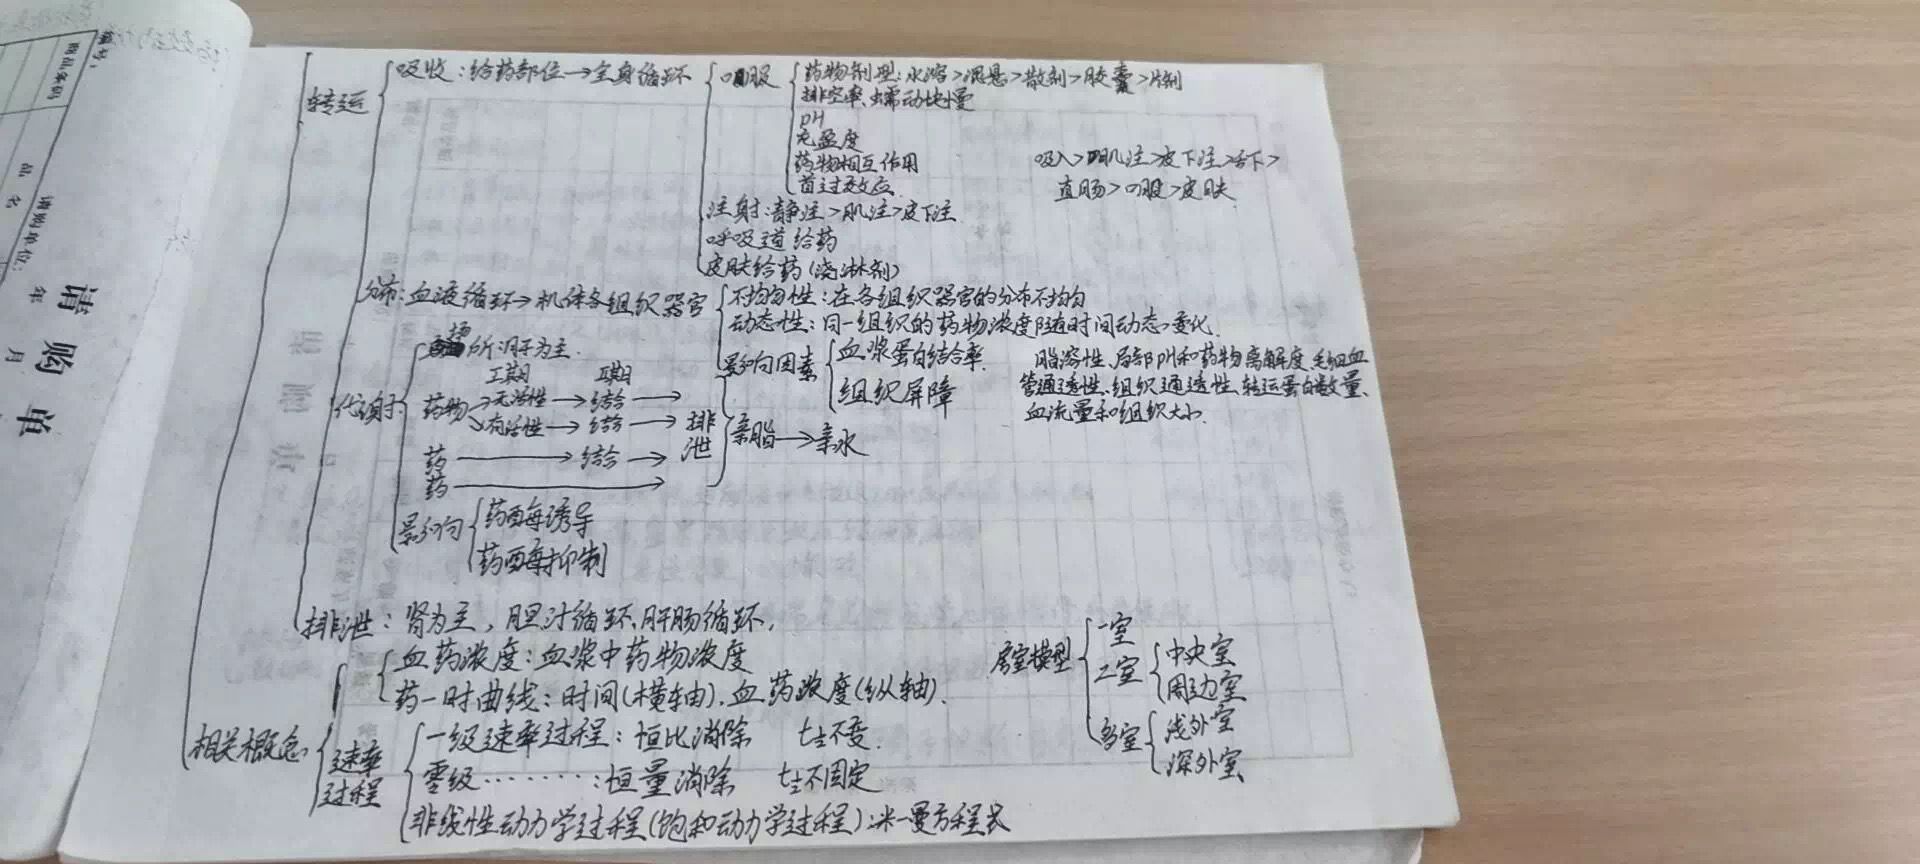 转运
吸收：给药部位→全身循环
口服
药物剂型：水溶>混悬>散剂>胶囊>片剂
排空率、蠕动快慢
pH
充盈度
药物相互作用
首过效应
吸入>肌注>皮下注>舌下>
直肠>口服>皮肤
注射：静注>肌注>皮下注
呼吸道给药
皮肤给药(浇淋剂)
分布：血液循环→机体各组织器官
不均匀性：在各组织器官的分布不均匀
动态性：同一组织的药物浓度随时间动态变化.
影响因素
血浆蛋白结合率.
组织屏障
脂溶性、局部pH和药物离解度、毛细血
管通透性、组织通透性、转运蛋白数量、
血流量和组织大小.
代谢
场所：肝为主.
I期 II期
药物→无活性→结合→
→有活性→结合→
排泄
药→结合→
药→
亲脂→亲水
影响
药酶诱导
药酶抑制
排泄：肾为主，胆汁循环、肝肠循环.
相关概念
血药浓度：血浆中药物浓度
药-时曲线：时间(横轴)，血药浓度(纵轴).
速率
过程
一级速率过程：恒比消除 t½不变.
零级………：恒量消除 t½不固定
非线性动力学过程(饱和动力学过程)：米-曼方程式
房室模型
一室
二室
中央室
周边室
多室
浅外室
深外室
编号：
商品条码
品名
请购单位：
年 月
请购单